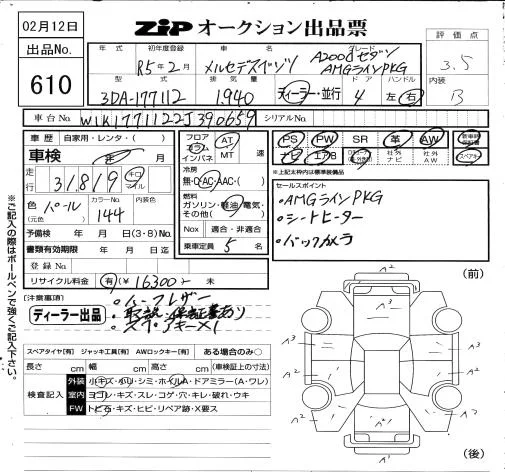 02月12日
ZIP オークション出品票
出品No.
610
年式
初年度登録
R5年2月
車名
メルセデスベンツ
グレード
A200dセダン
AMGラインPKG
評価点
3.5
内装
B
型式
3DA-177112
排気量
1,940
ディーラー・並行
ドア
4
ハンドル
左・右
車台No.
W1K1771122J390659
シリアルNo.
車歴 自家用・レンタ・( )
車検 年 月
走行 31,819 キロ マイル
色 (元色) パール
カラーNo. 144
内装色
予備検 年 月 日(3・8)No.
書類有効期限 年 月 日
登録No.
リサイクル料金 有(¥ 16300 - 未
フロア コラム インパネ
AT
MT 速
冷房
無・AC・AAC・( )
燃料
ガソリン・軽油・電気・
その他( )
Nox 適合・非適合
乗車定員 5 名
PS PW SR 革 AW 新車時保証書
ナビ エアB 社外ナビ 社外AW スペアキー
※上記太枠内は標準装備品
セールスポイント
・AMGラインPKG
・シートヒーター
・バックカメラ
[注意事項]
ディーラー出品
・ハーフレザー
・取説・保証書あり
・スペアキー×1
スペアタイヤ[有] ジャッキ工具[有] AWロックキー[有] ある場合のみ○
長さ cm 幅 cm 高さ cm (車検証上の寸法)
検査記入
外装 小キズ・小凹・シミ・ホイルA・ドアミラー(A・ワレ)
室内 ヨゴレ・キズ・スレ・コゲ・穴・キレ・破れ・ウキ
FW トビ石・キズ・ヒビ・リペア跡・X要ス
※ご記入の際はボールペンで強くご記入下さい。
(前)
A2
A2
A3
A2
A3
A3
A2
A2
A2
A2
A1
(後)